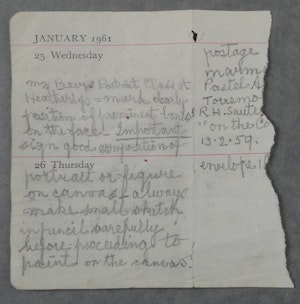 JANUARY 1961
25 Wednesday
Portrait Class at
Heatherlys - mark clearly
position of prominent bones
on the face - Important
sign good composition of
26 Thursday
portrait or figure
on canvas - always
make small sketch
in pencil carefully
before proceeding to
paint on the canvas.
postage
Pastel S
R.H. Saute
"on the Co
13-2-59.
envelope